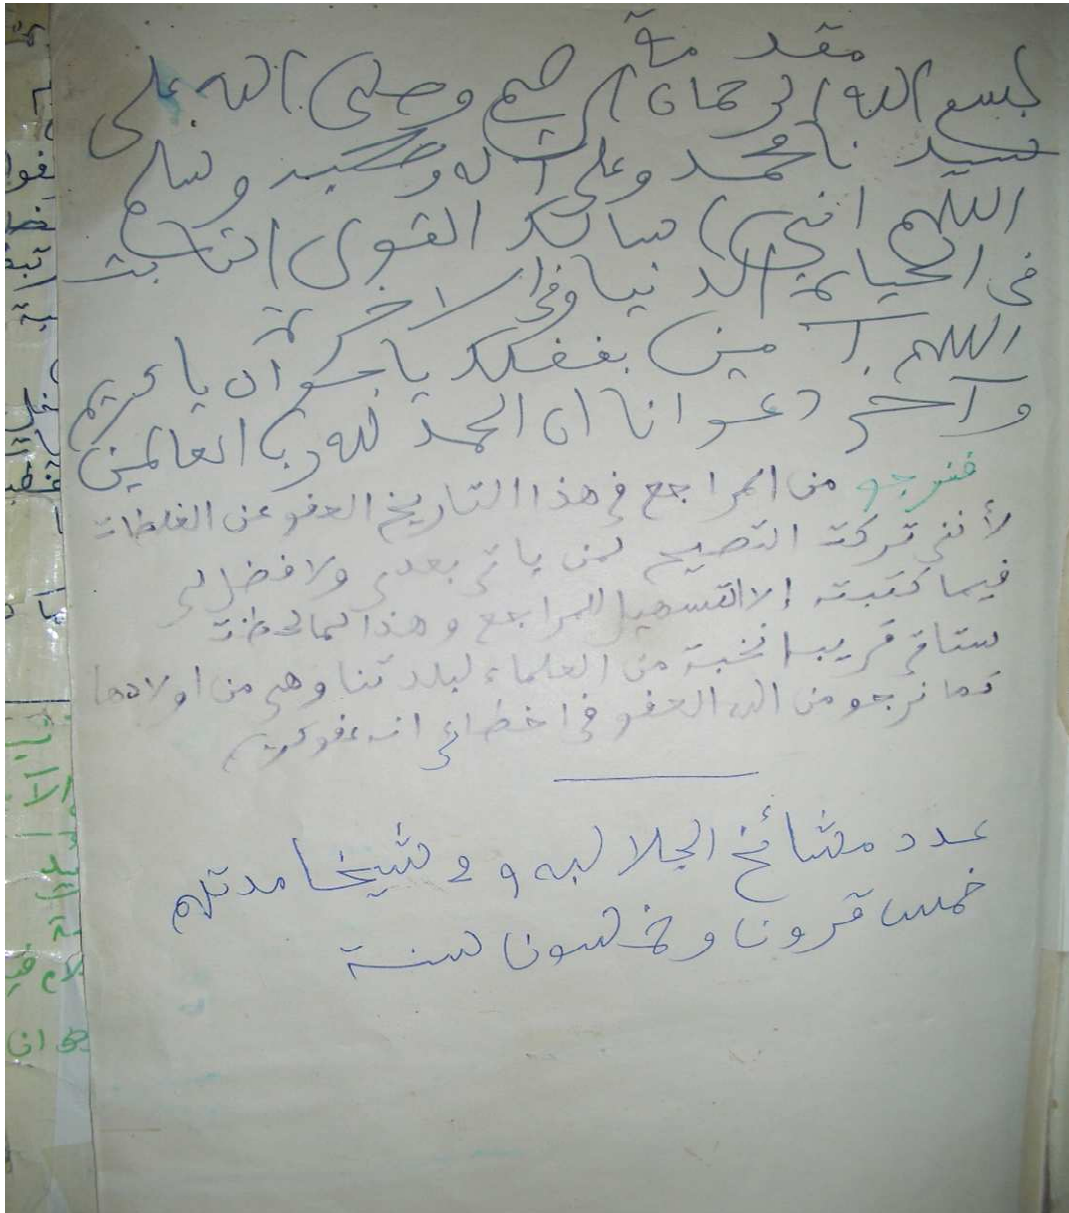 مقدمة
بسم الله الرحمان الرحيم وصلى الله على
سيدنا محمد وعلى آله وصحبه وسلم
اللهم انى سالك القول الثابت
في الحياة الدنيا وفي الاخرة
اللهم آمين بفضلك يا جواد يا كريم
وآخر دعوانا ان الحمد لله رب العالمين
فنرجو من المراجع في هذا التاريخ العفو عن الغلطات
لأننى تركت التصحيح لمن ياتى بعدى ولا فضل لى
فيما كتبته الا التسهيل للمراجع وهذا
ستاتى قريبا نخبة من العلماء لبلدتنا وهى من اولادها
كما نرجو من الله العفو في اخطائى انه عفو كريم
عدد مشائخ الجلالبه و شيخا مدتهم
خمس قرونا وخمسونا سنة